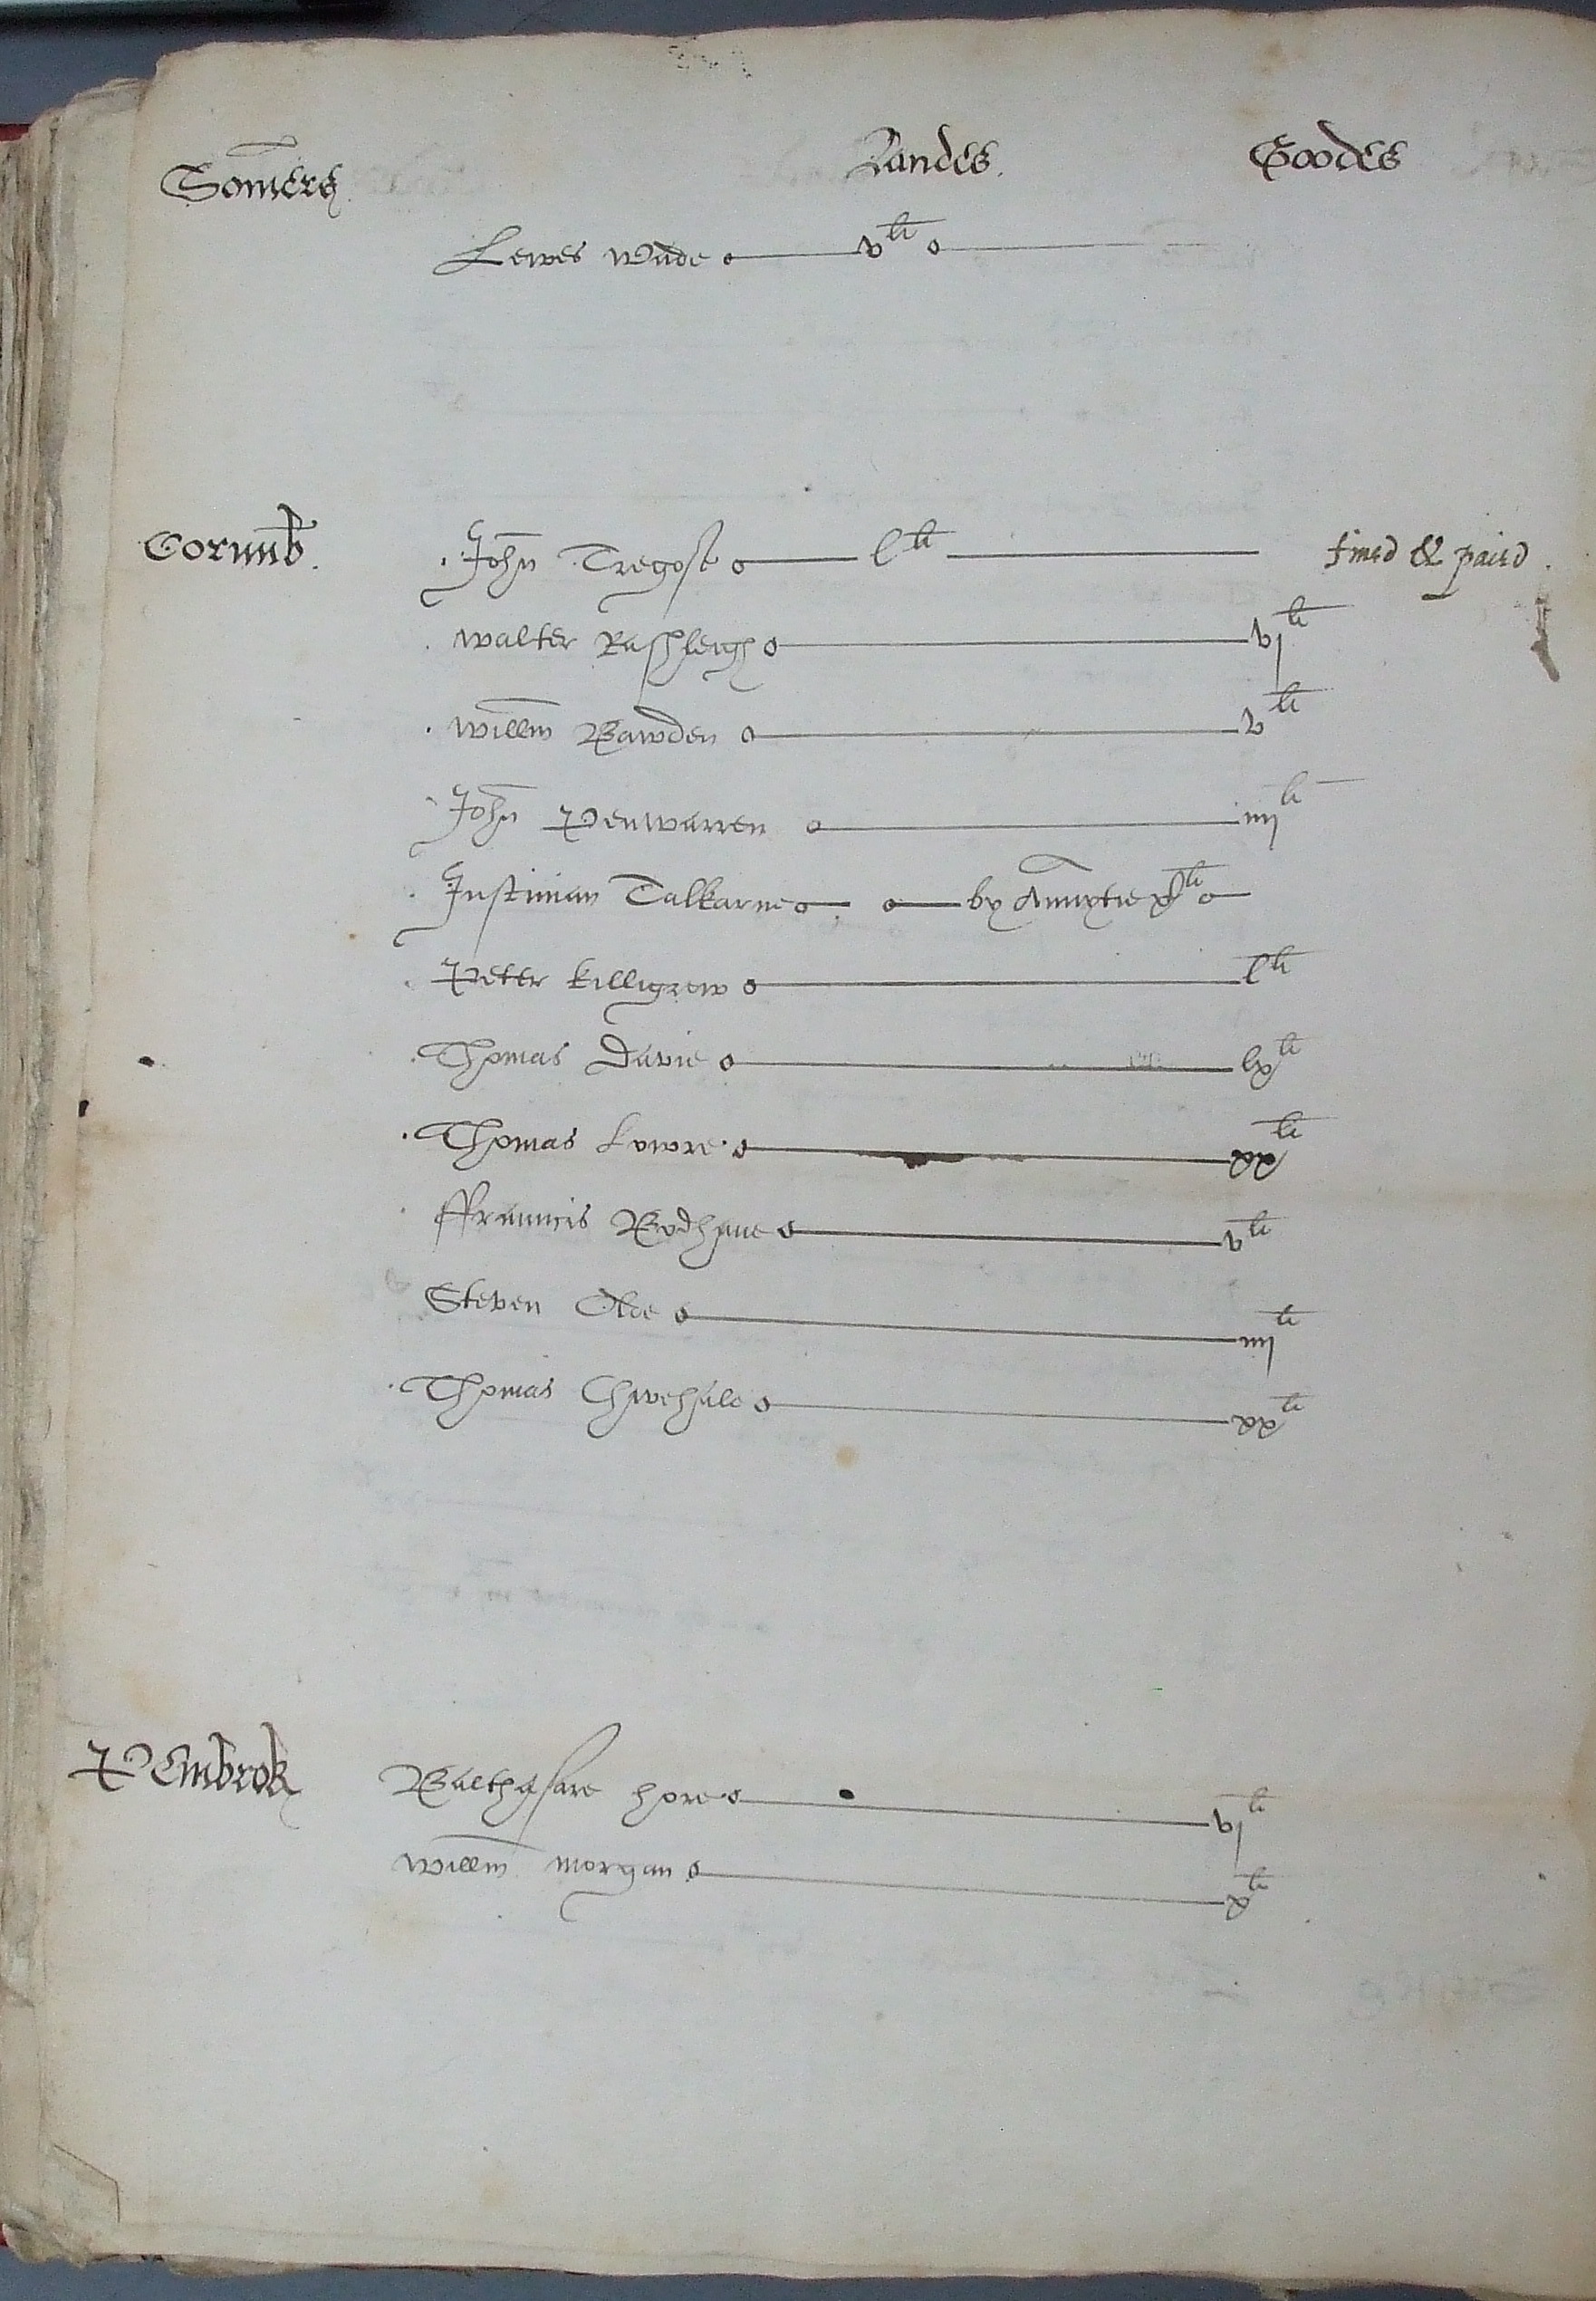 Somers Landes Goodes
Lewes Wade vli
Cornub. John Tregose lli fined & paied
Walter Rashleigh vjli
Willm Bawden vli
John Penwarren iiijli
Justinian Talkarne by Annytie xlli
Peter Killigrew lli
Thomas Davie lxli
Thomas Lowre xxli
ffrauncis Bodhane vli
Steven Olde iiijli
Thomas xxli
Pembrok Balthasare hore vjli
Willm Morgan xli